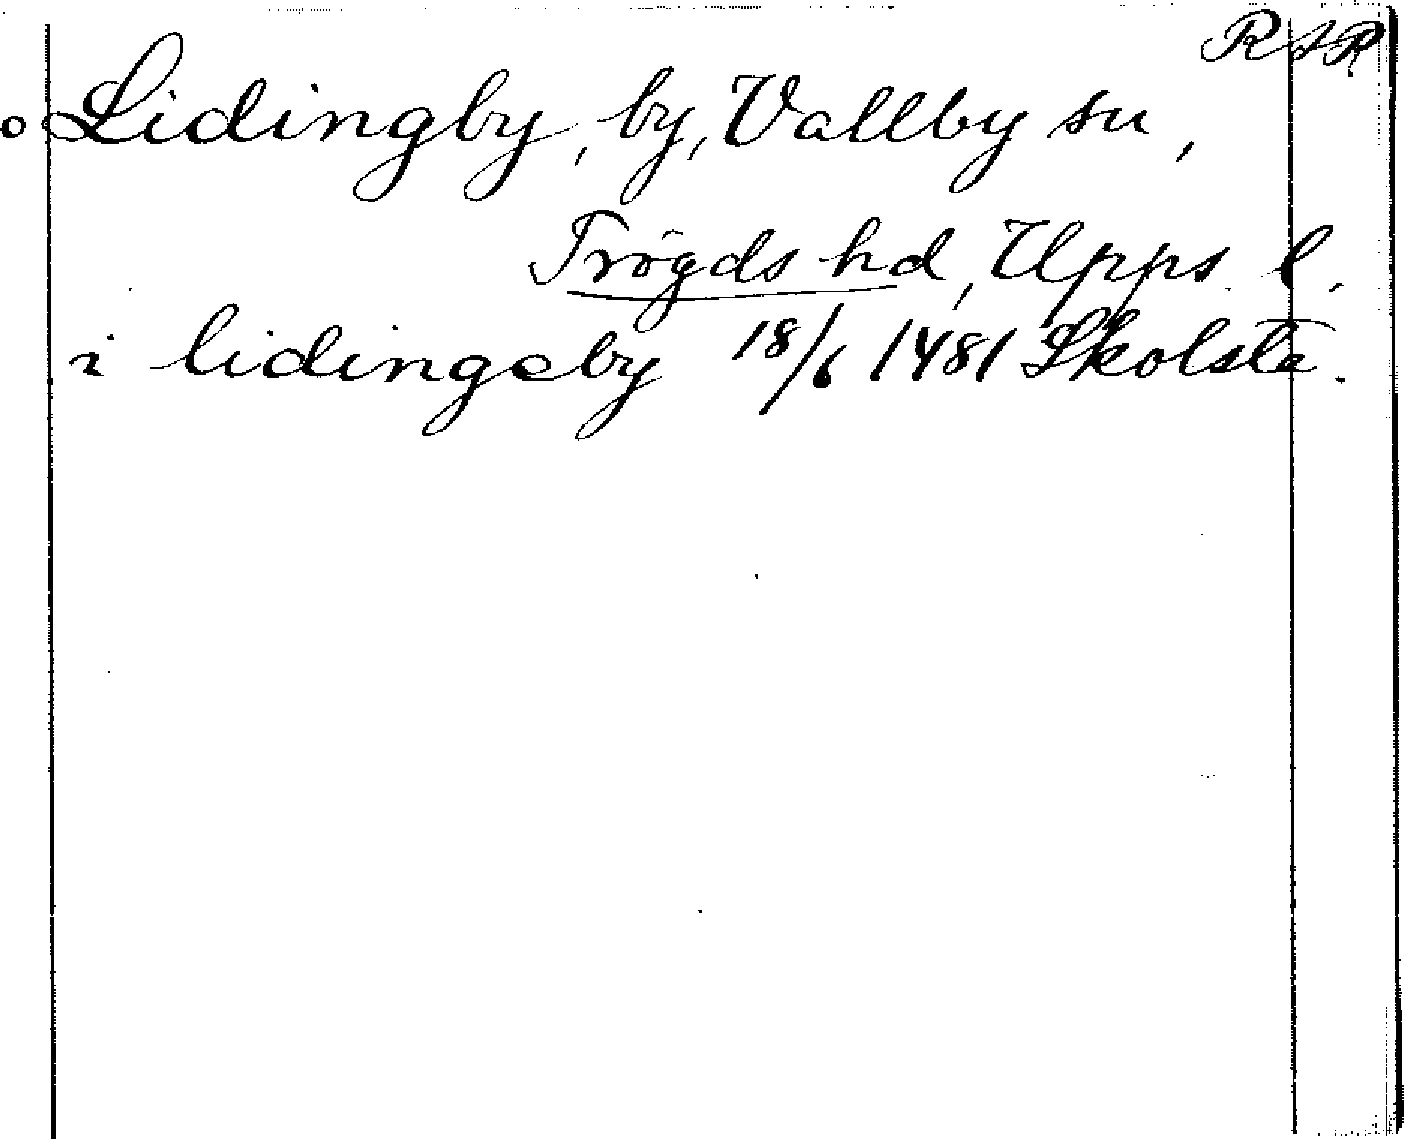 RAR
o Lidingby, by, Vallby sn,
Trögds hd, Upps. l.
i lidingeby 18/6 1481 Skolsta.